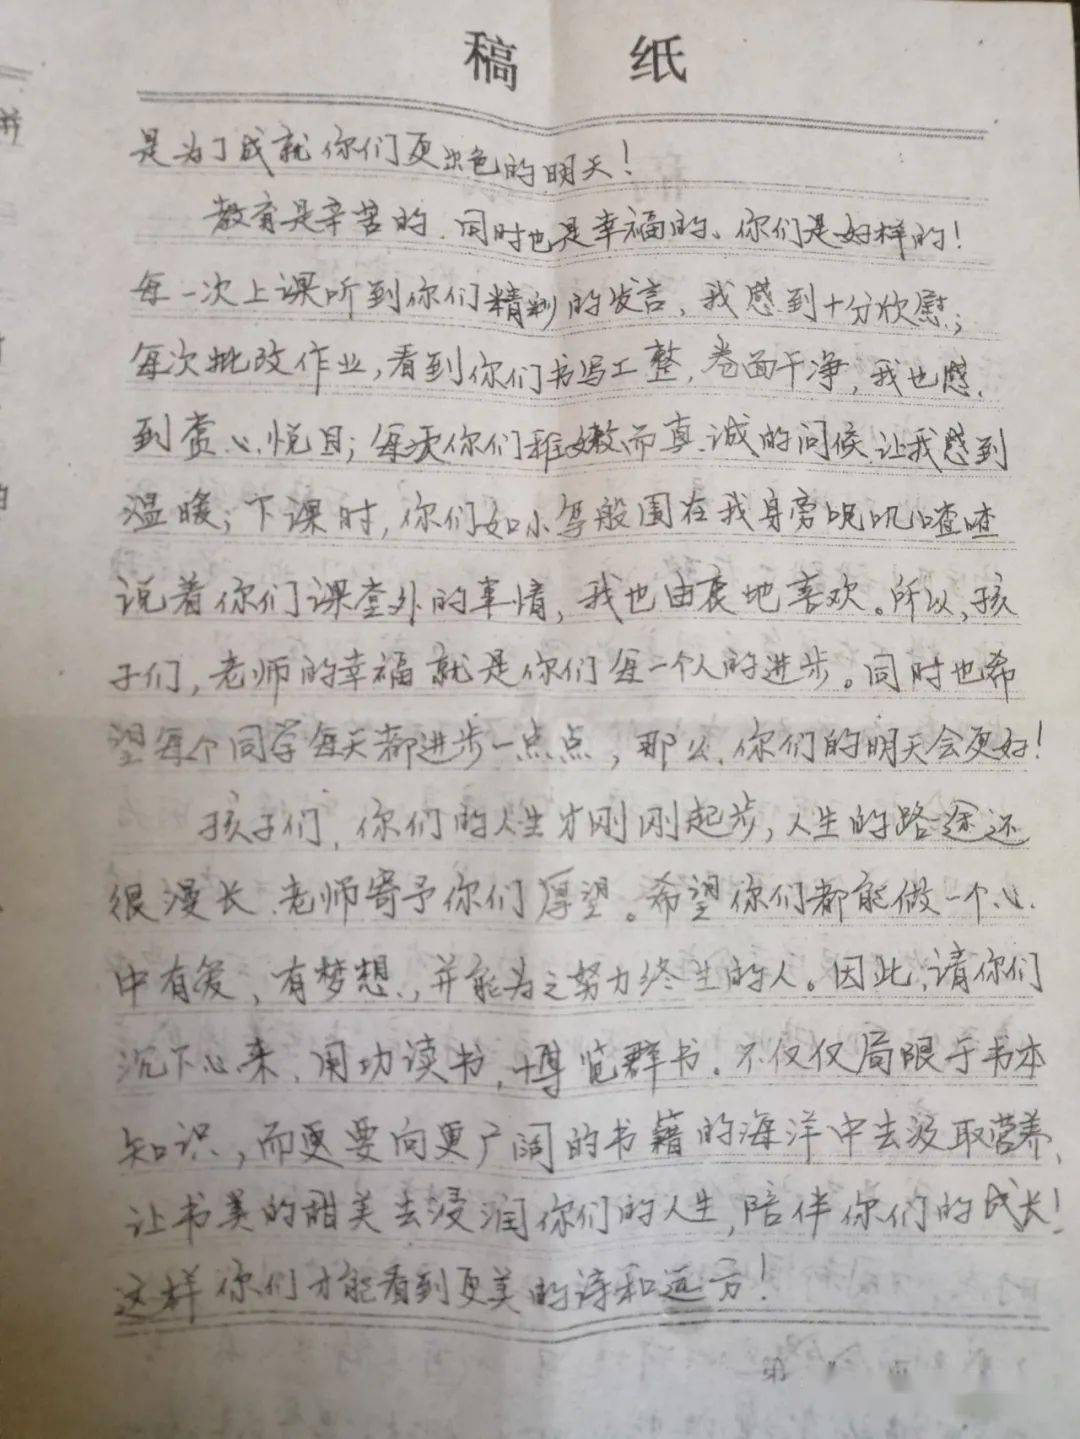 稿 纸
是为了成就你们更出色的明天!
教育是辛苦的、同时也是幸福的。你们是好样的!
每一次上课听到你们精彩的发言,我感到十分欣慰;
每次批改作业,看到你们书写工整,卷面干净,我也感
到赏心悦目;每次你们稚嫩而真诚的问候,让我感到
温暖;下课时,你们如小鸟般围在我身旁叽叽喳喳
说着你们课堂外的事情,我也由衷地喜欢。所以,孩
子们,老师的幸福就是你们每一个人的进步。同时也希
望每个同学每天都进步一点点,那么,你们的明天会更好!
孩子们,你们的人生才刚刚起步,人生的路途还
很漫长、老师寄予你们厚望。希望你们都能做一个心
中有爱,有梦想,并能为之努力终生的人。因此,请你们
沉下心来、用功读书,博览群书。不仅仅局限于书本
知识,而更要向更广阔的书籍的海洋中去汲取营养、
让书美的甜美去浸润你们的人生,陪伴你们的成长!
这样你们才能看到更美的诗和远方!
第 页